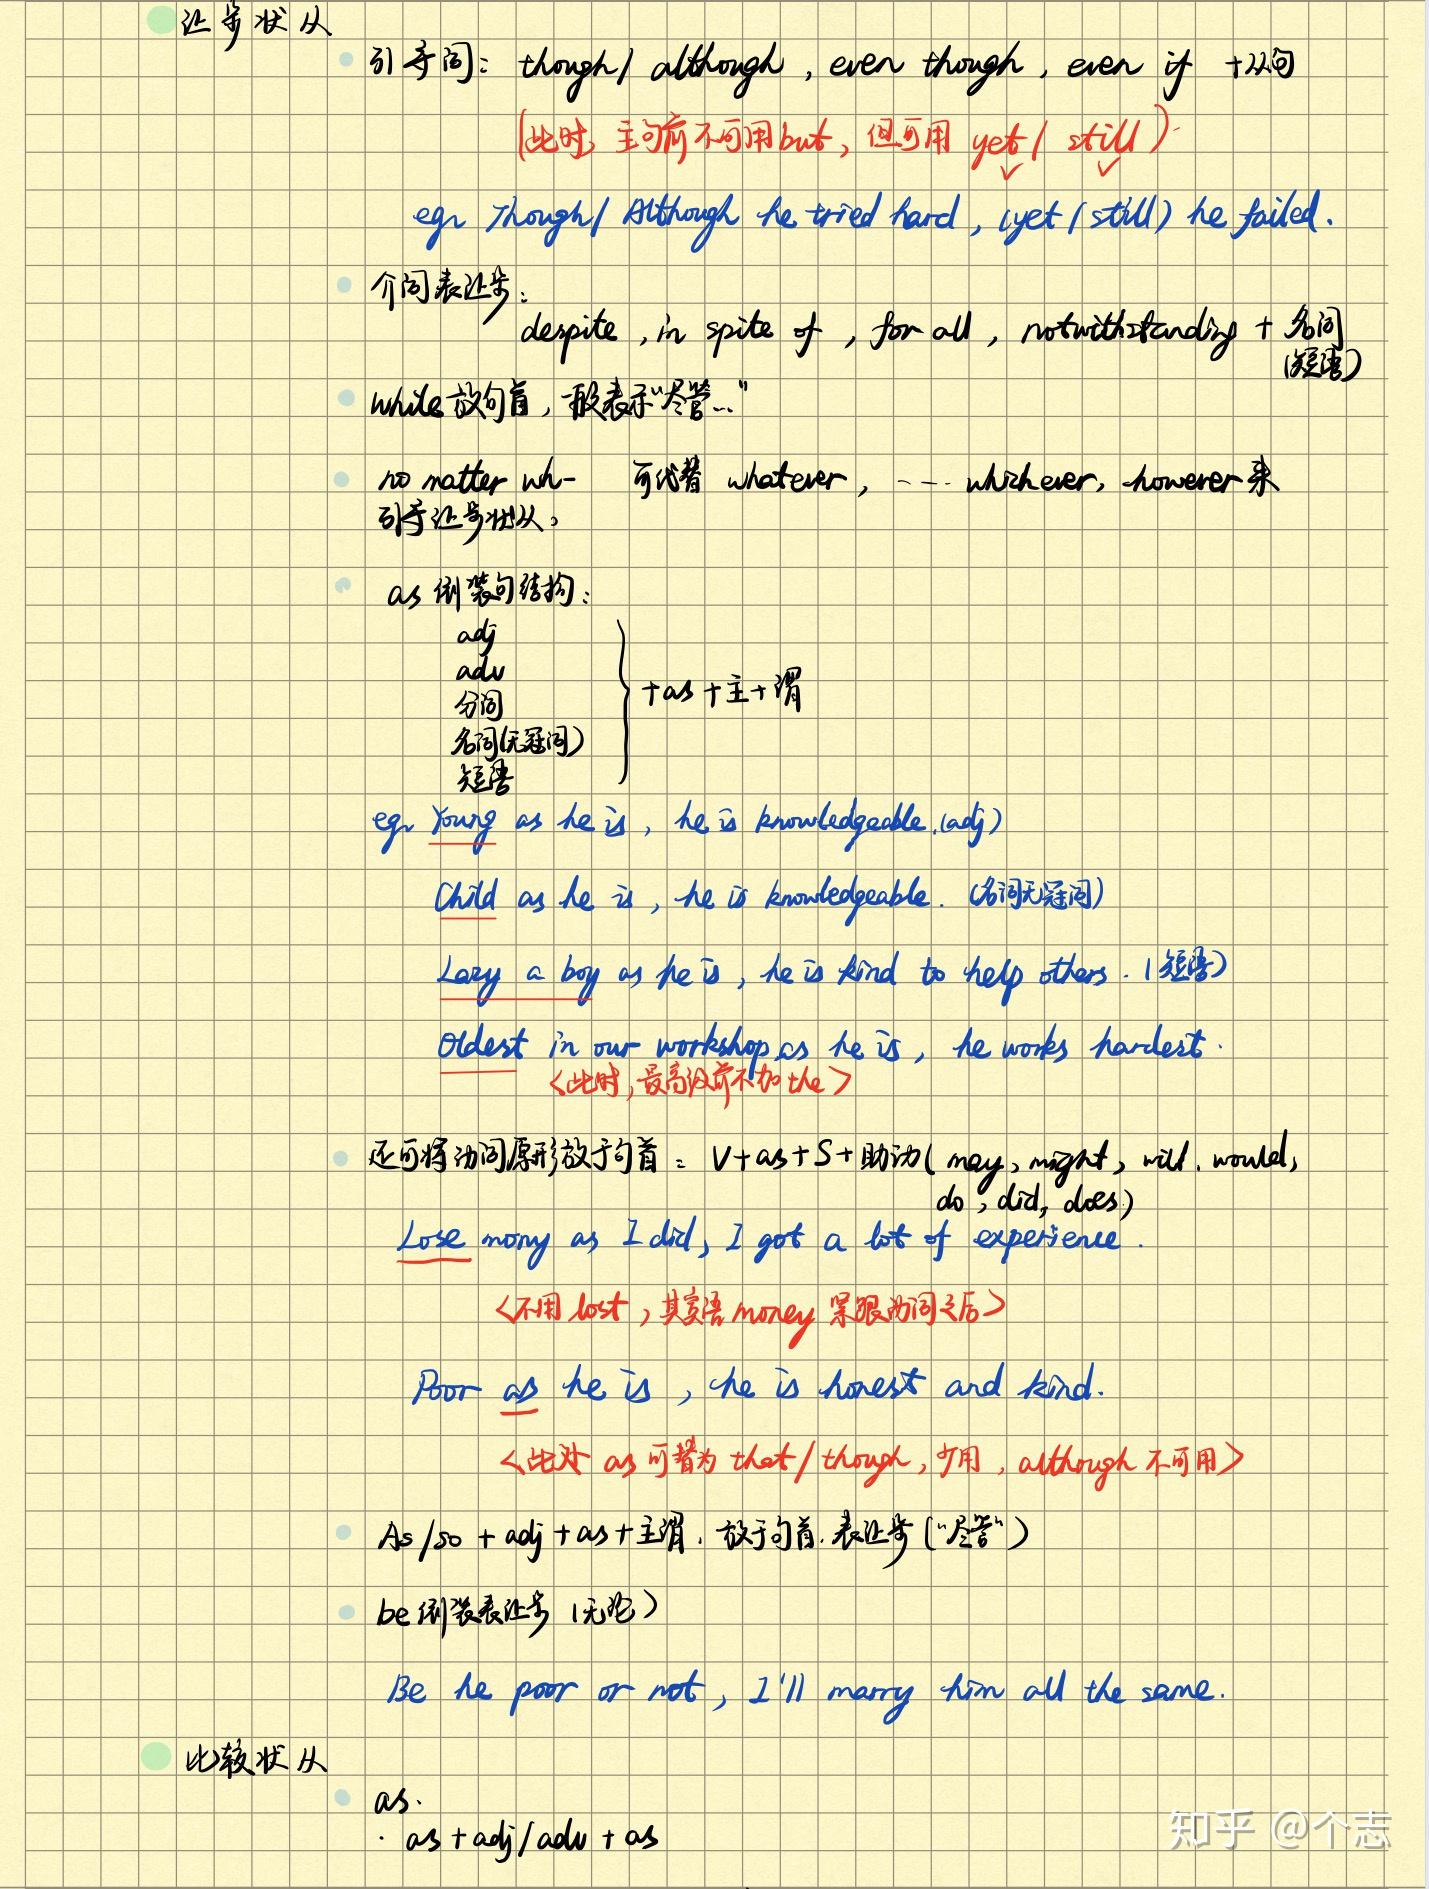 让步状从
引导词: though/ although, even though, even if +从句
(此时, 主句前不可用but, 但可用 yet/ still)
eg. Though/ Although he tried hard, (yet/still) he failed.
介词表让步:
despite, in spite of, for all, notwithstanding + 名词
(短语)
while放句首, 一般表示“尽管…”
no matter wh- 可代替 whatever, ---- whichever, however来
引导让步状从,
as 倒装句结构:
adj
adv
分词
名词(无冠词)
短语
+as+主+谓
eg. Young as he is, he is knowledgeable. (adj)
Child as he is, he is knowledgeable. (名词无冠词)
Lazy a boy as he is, he is kind to help others. (短语)
Oldest in our workshop as he is, he works hardest.
<此时, 最高级前不加 the>
还可将动词原形放于句首: V+as+S+助动( may, might, will, would,
do, did, does)
Lose mony as I did, I got a lot of experience.
<不用 lost, 其宾语 money 紧跟动词之后>
Poor as he is, he is honest and kind.
<此处 as 可替为 that/though, 少用, although 不可用>
As/so + adj + as + 主谓, 放于句首, 表让步 (“尽管”)
be 倒装表让步 (无论)
Be he poor or not, I'll marry him all the same.
比较状从
as.
· as + adj/adv + as
知乎 @个志